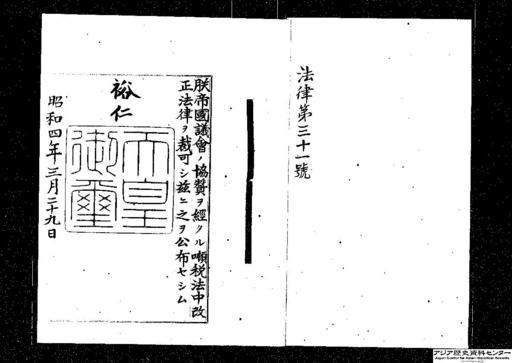 法律第三十一號
朕帝國議會ノ協贊ヲ經タル噸税法中改
正法律ヲ裁可シ茲ニ之ヲ公布セシム
裕仁
天皇
御璽
昭和四年三月二十九日
アジア歴史資料センター
Japan Center for Asian Historical Records